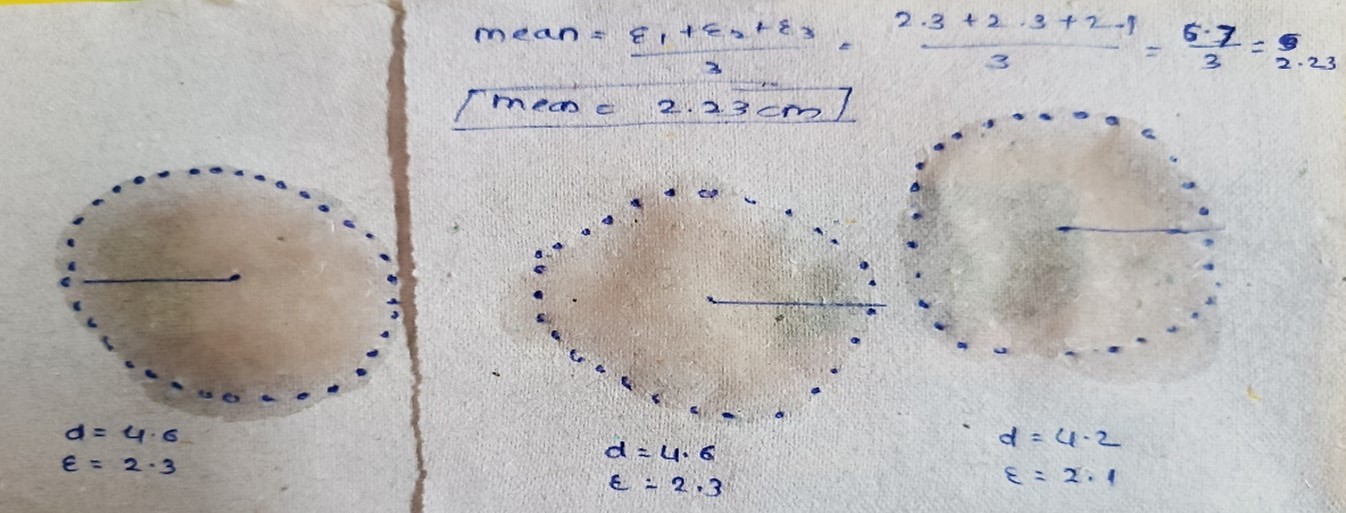 mean = ε₁ + ε₂ + ε₃ / 3 = 2.3 + 2.3 + 2.1 / 3 = 6.7 / 3 = 2.23
mean = 2.23 cm
d = 4.6
ε = 2.3
d = 4.6
ε = 2.3
d = 4.2
ε = 2.1